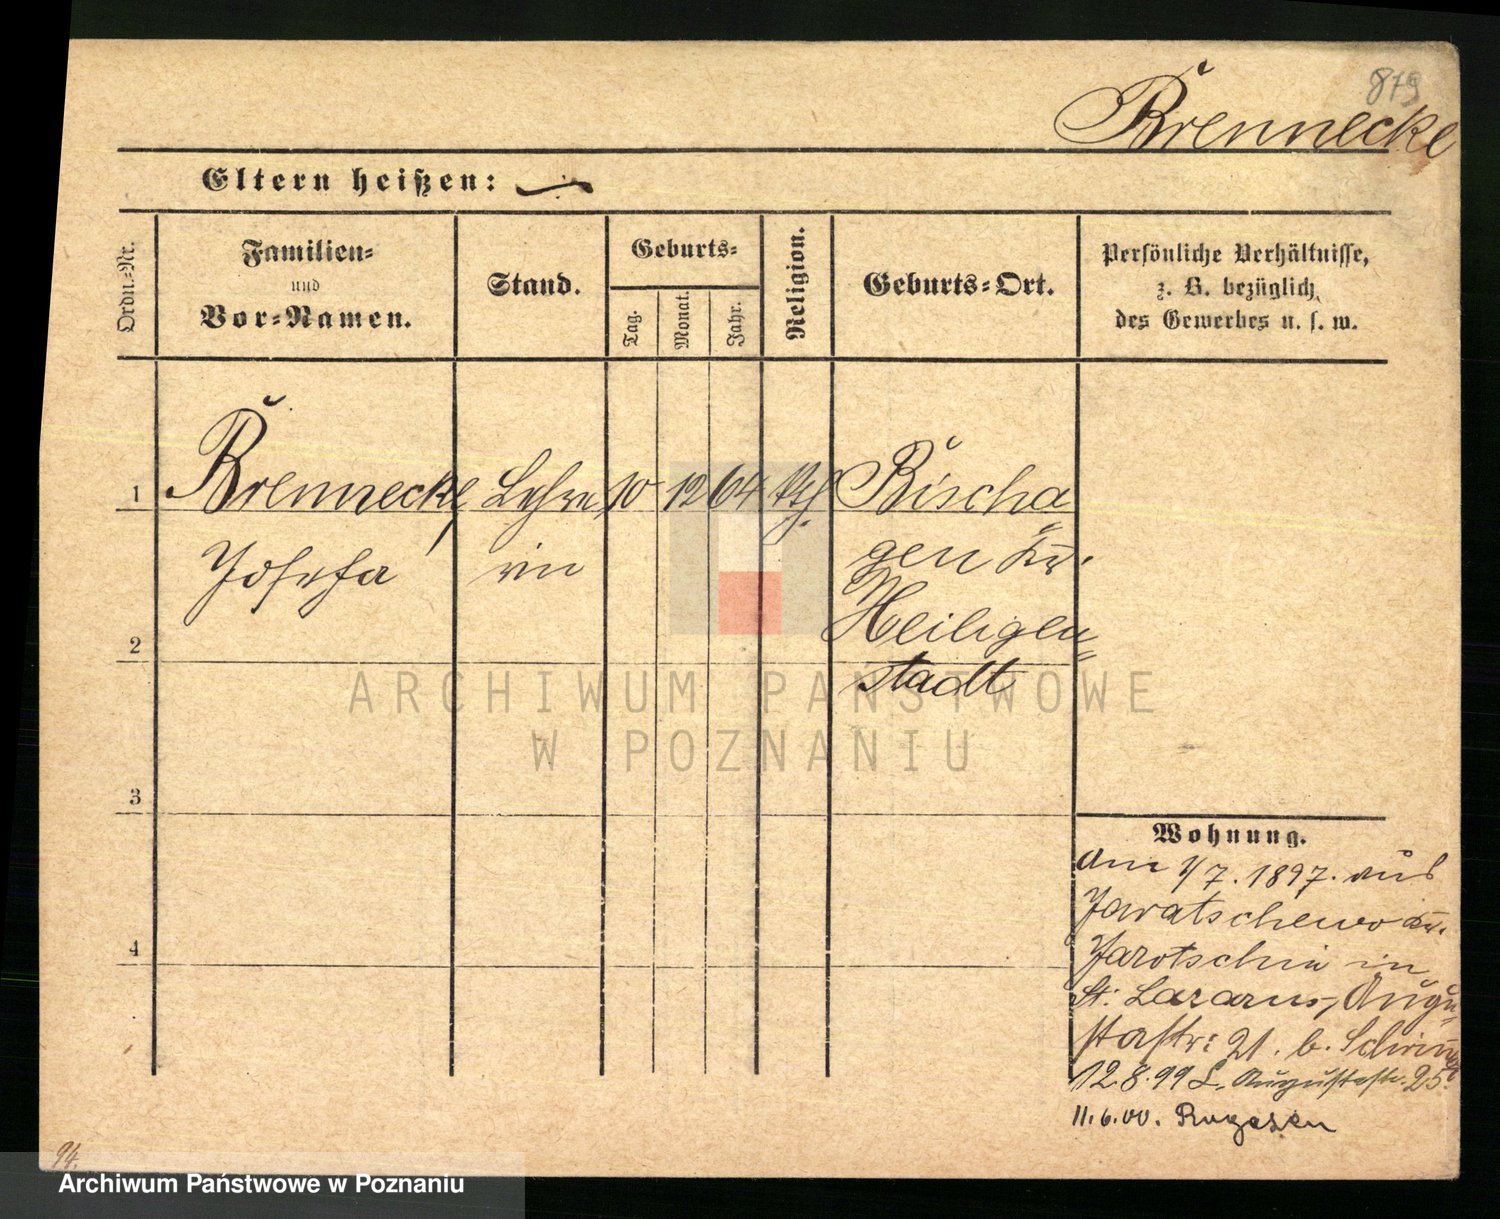 879
Brennecke
Eltern heißen:
Ordn.-Nr.
Familien-
und
Vor-Namen.
Stand.
Geburts-
Tag.
Monat.
Jahr.
Religion.
Geburts-Ort.
Persönliche Verhältnisse,
z. B. bezüglich
des Gewerbes u. s. w.
1 Brennecke, Lehre 10 12 64 kth. Bischa
Josefa rin gen Kr.
Heiligen
2
stadt
ARCHIWUM PAŃSTWOWE
W POZNANIU
3
Wohnung.
Am 1/7. 1897. aus
Jaratschewo Kr.
4
Jarotschin in
St. Lazarus, Augu-
stastr: 21. b.
12.8.99 L. Augustastr. 25.
11.6.00. Rogasen
94.
Archiwum Państwowe w Poznaniu